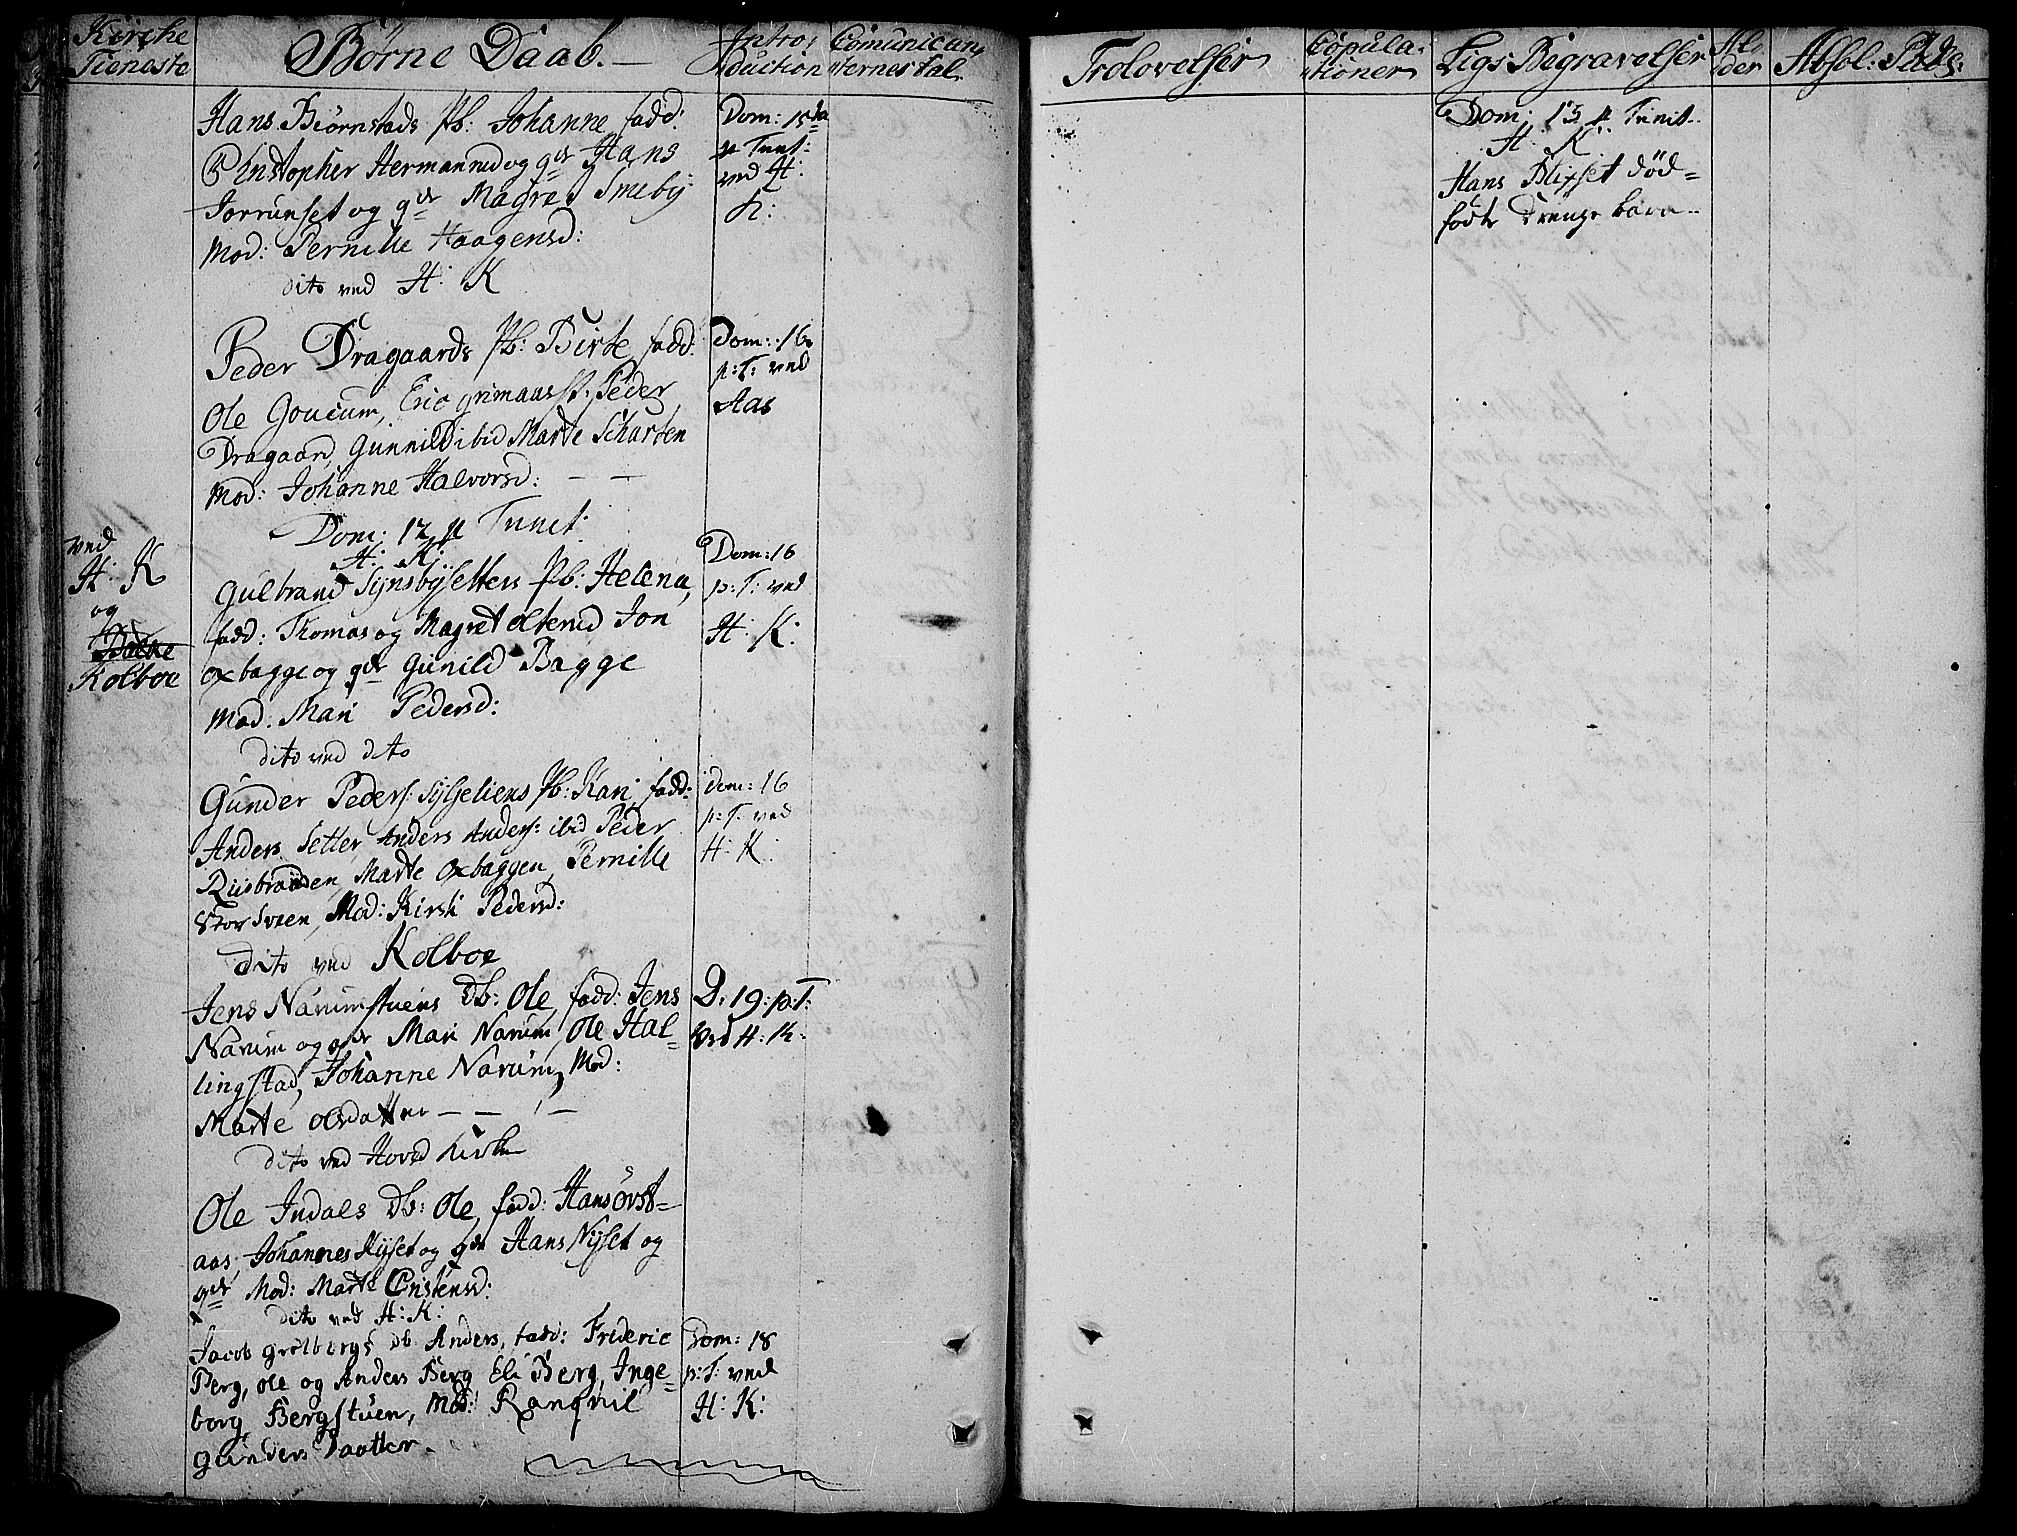 Kirche
Tieneste
Børne Daab. —
Intro,
duction
Comunican,
ternes tal.
Trolovelser
Copula-
tioner
Ligs: Begravelser
Al-
der
Absol: Publ:
Hans Biørnstads Pb: Johanne fadd:
Christopher Hermanrud og qdr Hans
Jorrunset og qdr Magret Smeby
Mod: Pernille Haagensd:
dito ved H: K
Dom: 15de
p Trinit:
ved H:
K:
Peder Dragaards Pb: Birte fadd:
Ole Goucum, Eric Grimaasst: Peder
Dragaard, Gunnild ibid Marte Scharten
Mod: Johanne Halvorsd: — —
Dom: 16
p: T: ved
Aas
Dom: 12 p Trinit:
H: K:
ved
H: K
og
Kolboe
Gulbrand Synsbysetters Pb: Helena,
fadd: Thomas og Magret Olterud Jon
Oxbagge og qdr Gunild Bagge
Mod: Mari Pedersd:
dito ved dito
Dom: 16
p: T: ved
H: K:
Gunder Peders: Sylseliens Pb: Kari, fadd:
Anders Setter, Anders Anders: ibid Peder
Riisbraaden, Marte Oxbaggen, Pernille
Storsveen, Mod: Kirsti Pedersd:
dito ved Kolboe
Dom: 16
p: T: ved
H: K:
Jens Narumstuens Db: Ole, fadd: Jens
Narum og qdr Mari Narum, Ole Hal-
lingstad, Johanne Narum, Mod:
Marte Olsdatter — — —
dito ved Hoved Kirken
D: 19: p: T:
ved H: K:
Ole Indals Db: Ole, fadd: Hans Øvst-
aas, Johannes Nyset og qdr Hans Nyset og
qdr Mod: Marte Cristensd:
dito ved H: K:
Jacob Grølbergs Db Anders, fadd: Frideric
Berg, Ole og Anders Berg Eli Berg, Inge-
borg Bergstuen, Mod: Ranqvil
Gunders Daatter.
Dom: 18
p: T: ved
H: K:
Dom: 15 p Trinit..
H: K:
Hans Blixset død-
født Drenge barn..